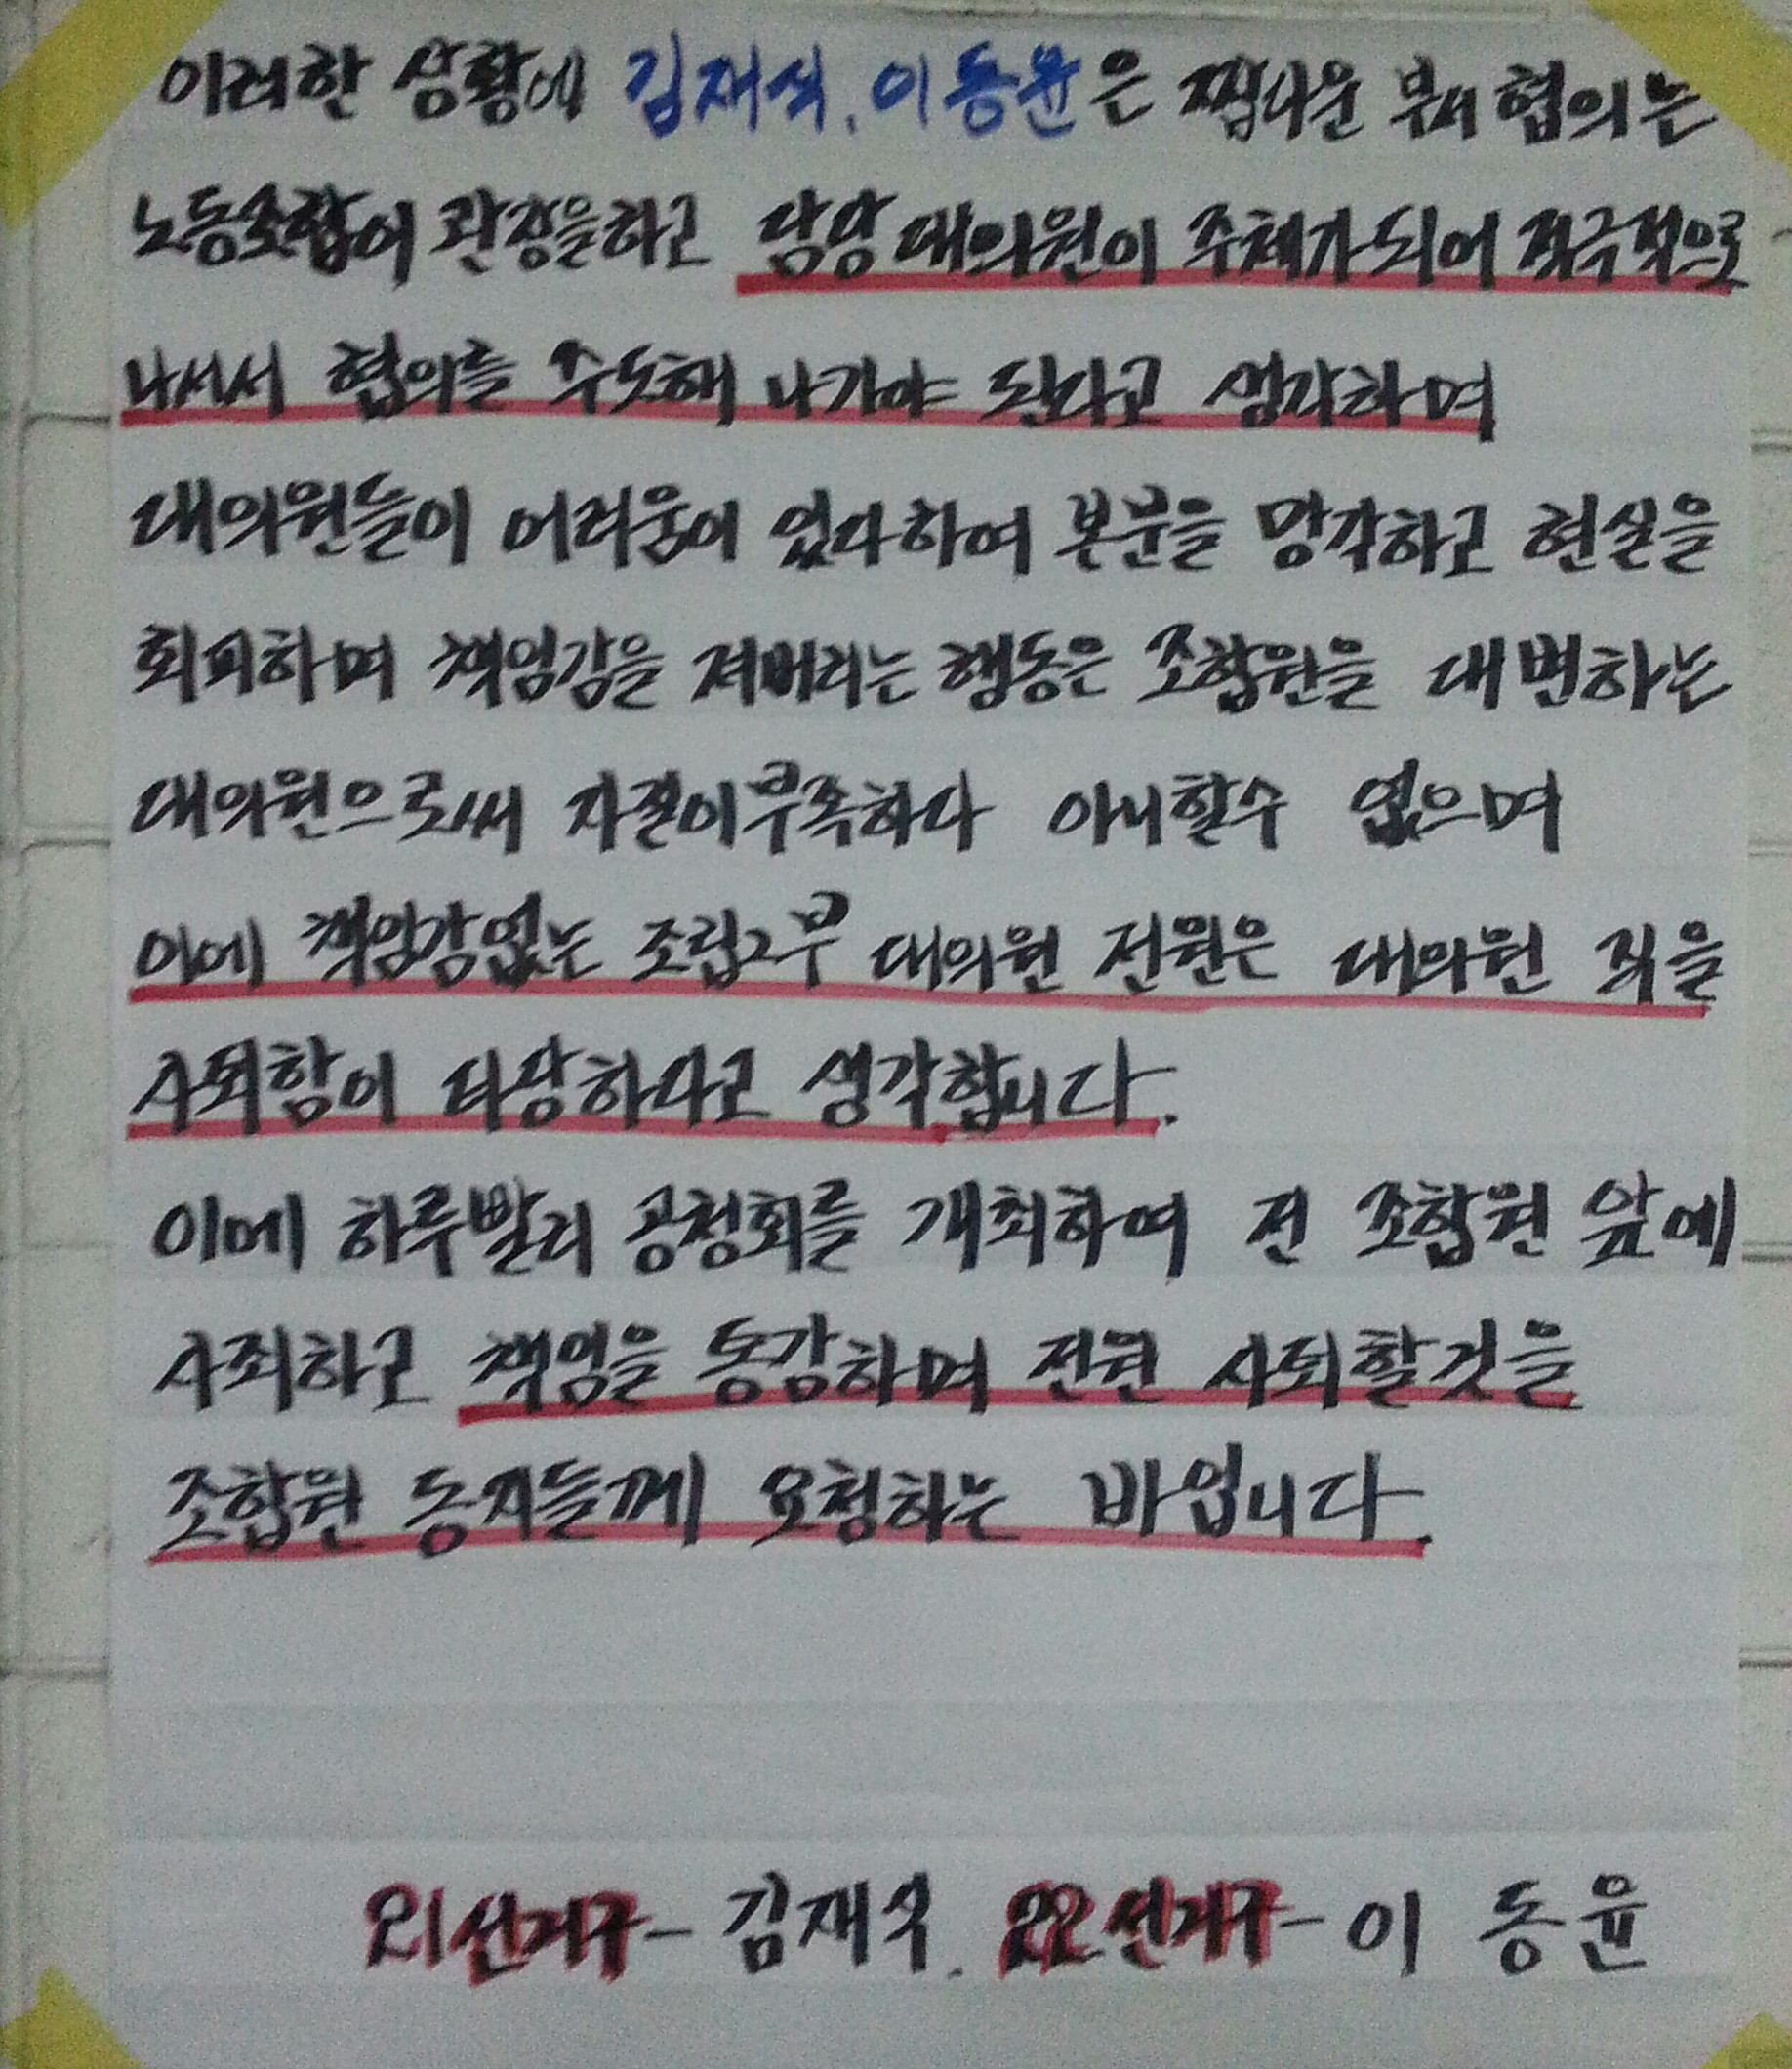 이러한 상황에 김재석, 이동윤은 찜다운 부내 협의는
노동조합이 관장을하고 담당 대의원이 주체가되어 적극적으로
나서서 협의를 주도해 나가야 된다고 생각하며
대의원들이 어려움이 있다하여 본분을 망각하고 현실을
회피하며 책임감을 져버리는 행동은 조합원을 대변하는
대의원으로써 자질이부족하다 아니할수 없으며
이에 책임감없는 조립2부 대의원 전원은 대의원 직을
사퇴함이 타당하다고 생각합니다.
이에 하루빨리 공청회를 개최하여 전 조합원 앞에
사죄하고 책임을 통감하며 전원 사퇴할것을
조합원 동지들께 요청하는 바입니다.
21선거구 - 김재석. 22선거구 - 이 동 윤